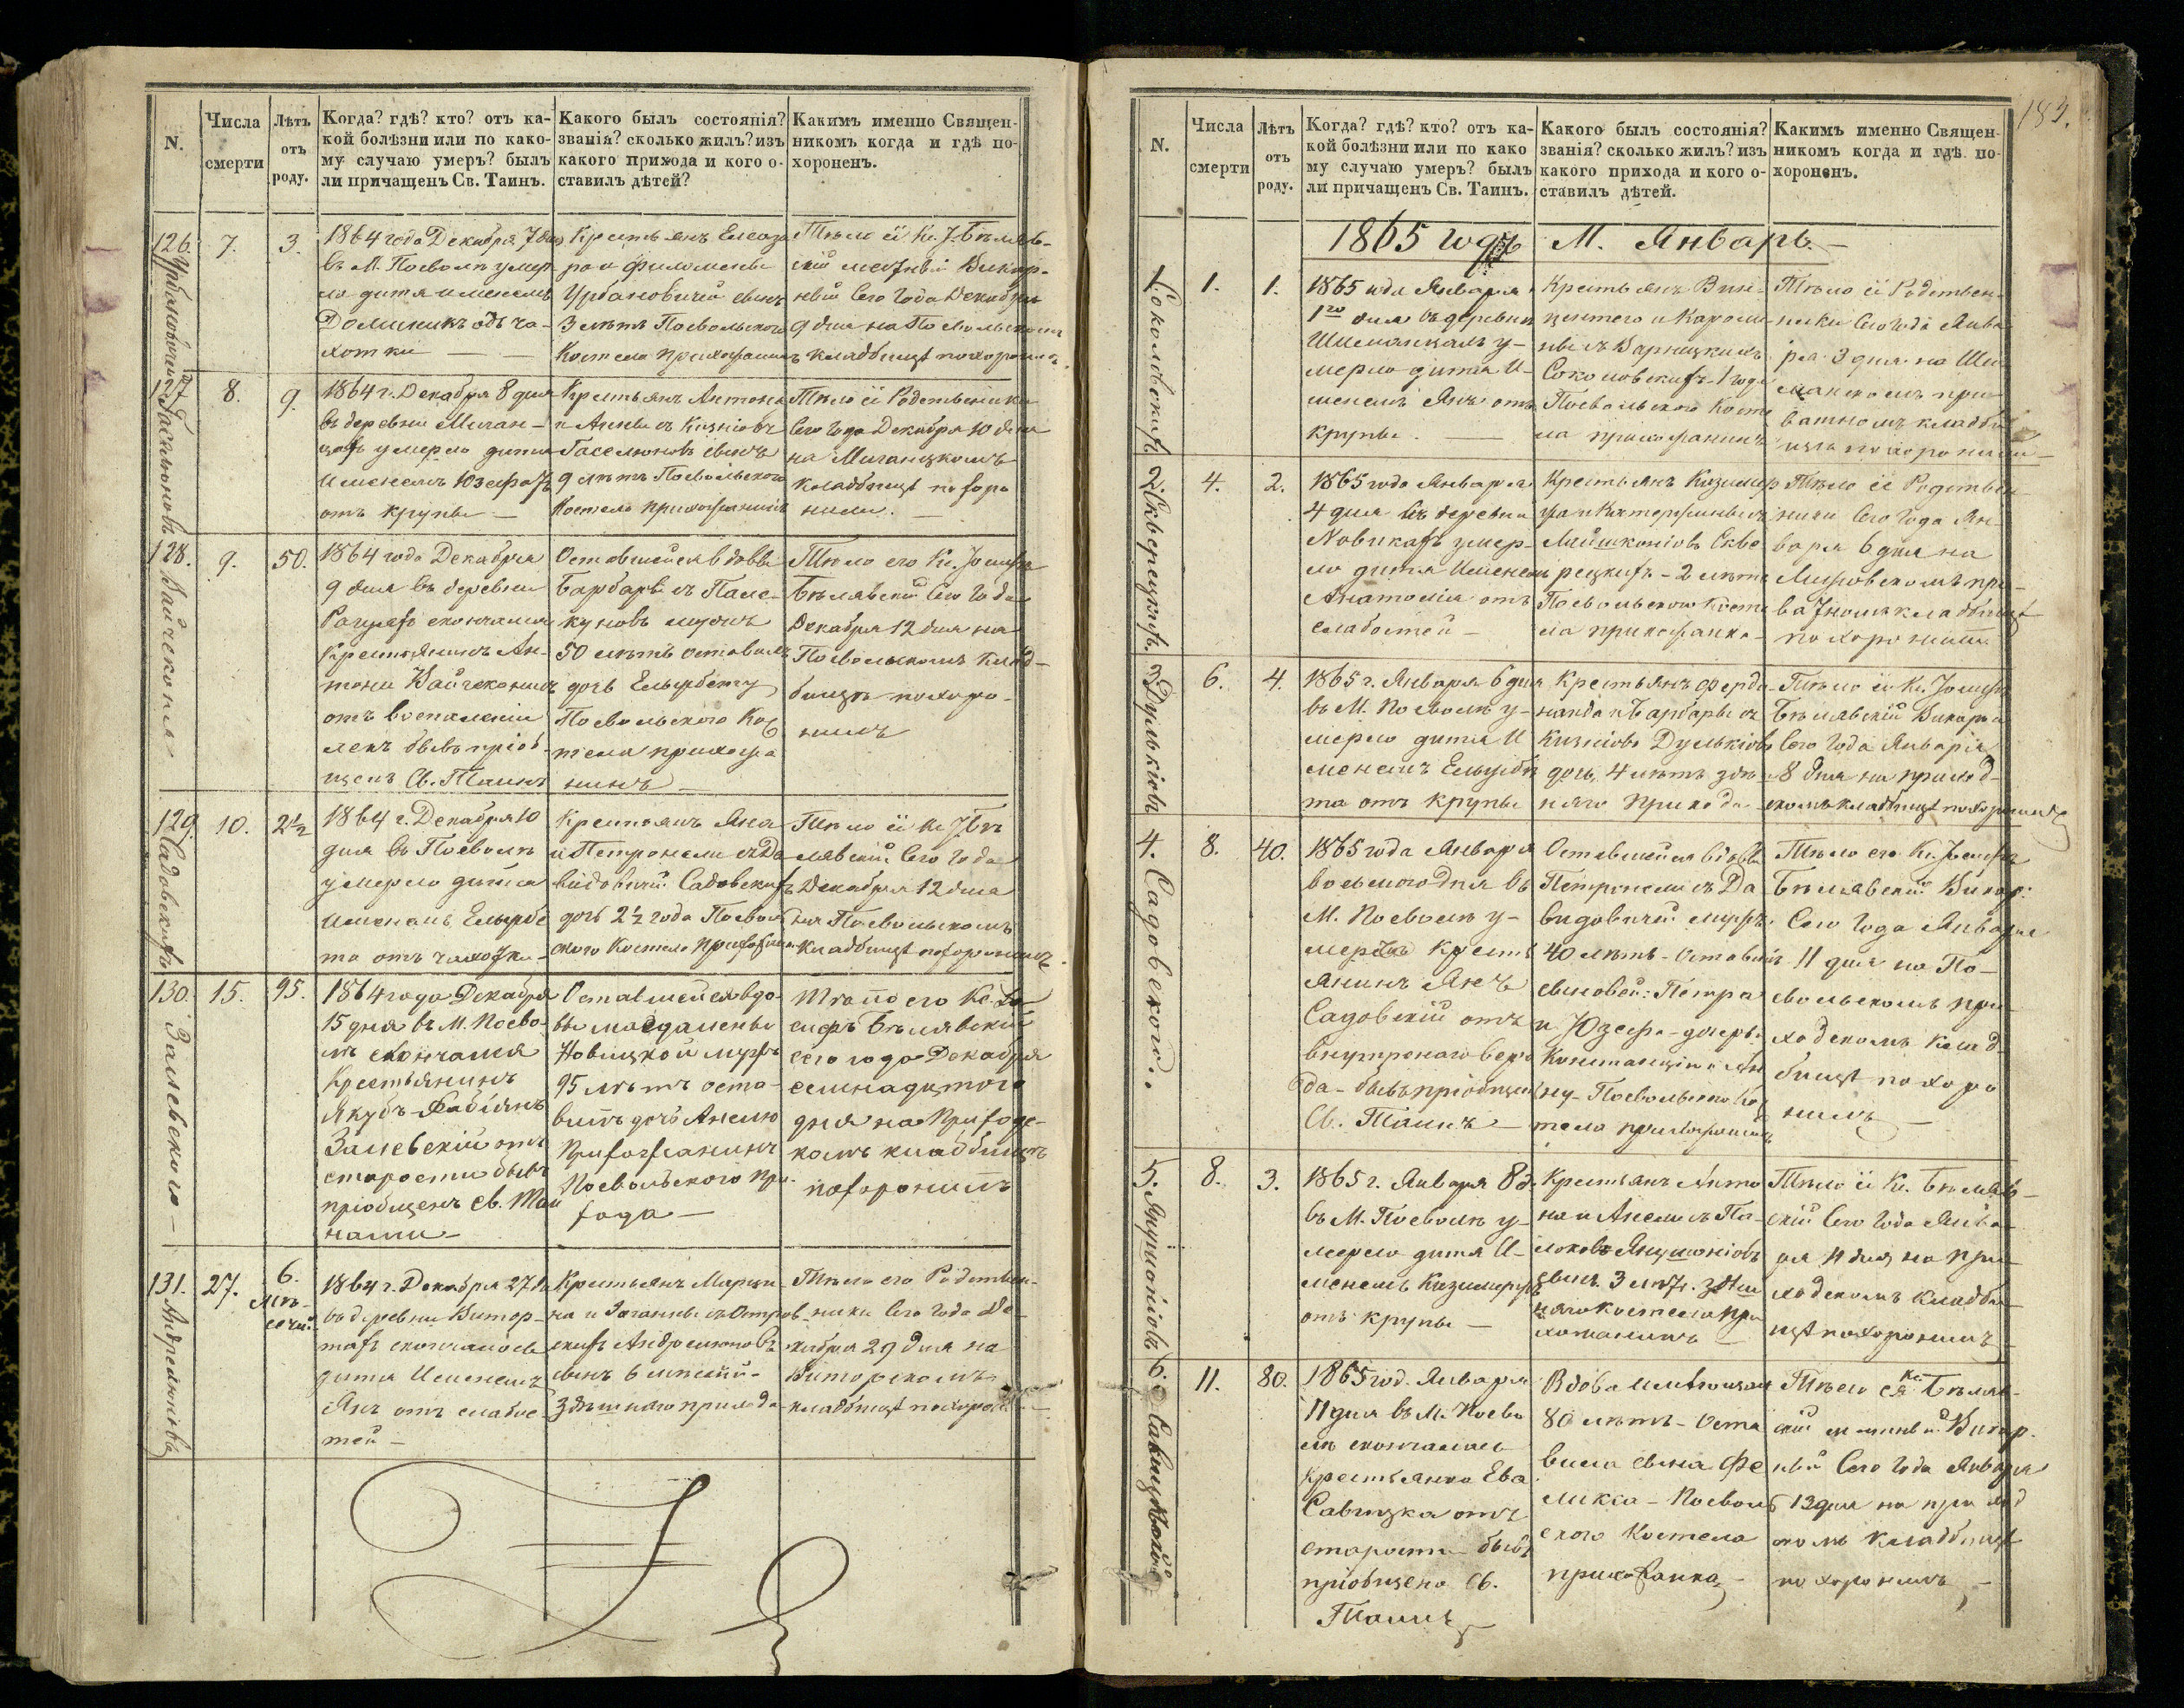 N.
Числа
смерти
Лѣтъ
отъ
роду.
Когда? гдѣ? кто? отъ ка-
кой болѣзни или по како-
му случаю умеръ? былъ
ли причащенъ Св. Таинъ.
Какого былъ состоянія?
званія? сколько жилъ? изъ
какого прихода и кого о-
ставилъ дѣтей?
Какимъ именно Священ-
никомъ когда и гдѣ по-
хороненъ.
126.
7.
3.
1864 года Декабря 7 дня
въ М. Посволѣ умер-
ло дитя именемъ
Доминикъ отъ ча-
хотки —
Крестьянъ
ра и Филомены
Урбановичей сынъ
3 лѣтъ Посвольского
Костела прихожанинъ
Тѣло её Кс. J. Бѣляв-
скій местный Викар-
ный Сего Года Декабря
9 дня на Посвольскомъ
кладбищѣ похоронилъ.
127.
8.
9.
1864 г. Декабря 8 дня
въ деревни Миган-
цахъ умерло дитя
Именемъ Юзефатъ
отъ крупы —
Крестьянъ Антона
и Анны съ
сынъ
9 лѣтъ Посвольского
Костела прихожанинъ
Тѣло её Родственники
Сего Года Декабря 10 дня
на Миганцкомъ
кладбищѣ похоро
нили. —
128.
9.
50.
1864 года Декабря
9 дня въ деревни
скончался
Крестьянинъ Ан-
тони
отъ воспаленія
былъ пріоб-
щенъ Св. Таинъ
Оставшейся вдовы
Барбары съ Пале-
куновъ мужъ
50 лѣтъ оставилъ
дочь Ельжбету
Посвольского Кос
тела прихожа
нинъ —
Тѣло его Кс. Іосифъ
Бѣлявскій Сего Года
Декабря 12 дня на
Посвольскомъ клад-
бищѣ похоро-
нилъ
129.
Садовскихъ
10.
2½
1864 г. Декабря 10
дня въ Посволѣ
умерло дитя
именемъ Ельжбе
та отъ чахотки —
Крестьянъ Яна
и Петронели съ Да
видовичей Садовскихъ
дочь 2½ года Посволь
ского Костела прихожанка
Тѣло её Кс. J. Бѣ
лявскій Сего Года
Декабря 12 дня
на Посвольскомъ
Кладбищѣ похоронилъ.
130.
Залевского —
15.
95.
1864 года Декабря
15 дня въ М. Посво-
лѣ скончался
Крестьянинъ
Якубъ-Фабіянъ
Залевскій отъ
старости бывъ
пріобщенъ Св. Тай
нами —
Оставшейся вдо-
вы Магдалены
Новицкой мужъ
95 лѣтъ оста-
вилъ дочь Анелю
Прихожанинъ
Посвольского При
хода —
Тѣло его Кс. Іо-
сифъ Бѣлявскій
сего года Декабря
семнадцатого
дня на Приходс-
комъ кладбищѣ
похоронилъ
131.
27.
6.
мѣ-
сечей.
1864 г. Декабря 27 д.
въ деревни Витар-
тахъ скончалось
дитя Именемъ
Янъ отъ слабос-
тей —
Крестьянъ Марци-
на и Іоганны съ Остров-
скихъ Андрелюновъ
сынъ 6 месячн.
Здѣшняго прихода
Тѣло его Родствен-
ники Сего Года Де-
кабря 29 дня на
Витарскомъ
кладбищѣ похорони
N.
Числа
смерти
Лѣтъ
отъ
роду.
Когда? гдѣ? кто? отъ ка-
кой болѣзни или по како
му случаю умеръ? былъ
ли причащенъ Св. Таинъ.
Какого былъ состоянія?
званія? сколько жилъ? изъ
какого прихода и кого о-
ставилъ дѣтей.
Какимъ именно Священ-
никомъ когда и гдѣ по-
хороненъ.
183.
1865 года М. Январь. —
1.
Соколовскихъ
1.
1.
1865 года Января
1го дня въ деревни
у-
мерло дитя И-
менемъ Янъ отъ
крупы. —
Крестьянъ Вин-
центего и Кароли-
ны съ Варницкихъ
Соколовскихъ 1 года
Посвольского Косте
ла прихожанинъ
Тѣло её Родствен-
ники Сего Года Янва
ря 3 дня на Ши-
манскомъ при-
ватномъ кладби-
щѣ похоронили —
2.
Скверецкихъ.
4.
2.
1865 года Января
4 дня въ деревни
Новикахъ умер-
ло дитя Именемъ
Анатолія отъ
слабостей —
Крестьянъ Казимер
жа и Катержины съ
Скве
рецкихъ - 2 лѣта
Посвольского Косте
ла прихожанка —
Тѣло её Родствен
ники Сего Года Ян
варя 6 дня на
при-
ватномъ кладбищѣ
похоронили
3.
Дулькіовъ
6.
4.
1865 г. Января 6 дня
въ М. Посволѣ у-
мерло дитя И
менемъ Ельжбе
та отъ крупы
Крестьянъ Ферди-
нанда и Барбары съ
Дулькіовъ
дочь 4 лѣтъ здѣш
няго прихода
Тѣло её Кс. Іосифъ
Бѣлявскій Викарій
Сего Года Января
8 дня на приход-
скомъ кладбищѣ похоронилъ
4.
Садовского.
8.
40.
1865 года Января
восьмого Дня въ
М. Посволѣ у-
меръ Кресть
янинъ Янъ
Садовскій отъ
внутренаго вере
да - бывъ пріобщенъ
Св. Таинъ —
Оставшейся вдовы
Петронели съ Да
видовичей мужъ
40 лѣтъ - оставилъ
сыновей: Петра
и Юзефа - дочерь
Констанцію и Ан
ну - Посвольского Кос
тела прихожанинъ
Тѣло его Кс. Іосифъ
Бѣлявскій Викар:
Сего Года Января
11 дня на По-
свольскомъ при-
ходскомъ клад-
бищѣ похоро
нилъ —
5.
8.
3.
1865 г. Января 8 д.
въ М. Посволѣ у-
мерло дитя И-
менемъ Казимержъ
отъ крупы —
Крестьянъ Анто
на и Анели съ
сынъ 3 лѣт. здѣш
няго костела при
хожанинъ
Тѣло её Кс. Бѣляв-
скій Сего Года Янва-
ря 11 дня на при-
ходскомъ кладби-
щѣ похоронилъ
6.
11.
80.
1865 год. Января
11 дня въ М. Посво
лѣ скончалась
Крестьянка Ева
Савицка отъ
старости бывъ
пріобщена Св.
Таинъ
Вдова имѣющая
80 лѣтъ - оста
вила сына Фе
ликса - Посволь
ского Костела
прихожанка —
Тѣло ея Кс. Бѣляв-
скій местный Викар-
ный Сего Года Января
13 дня на приход
комъ кладбищѣ
похоронилъ —